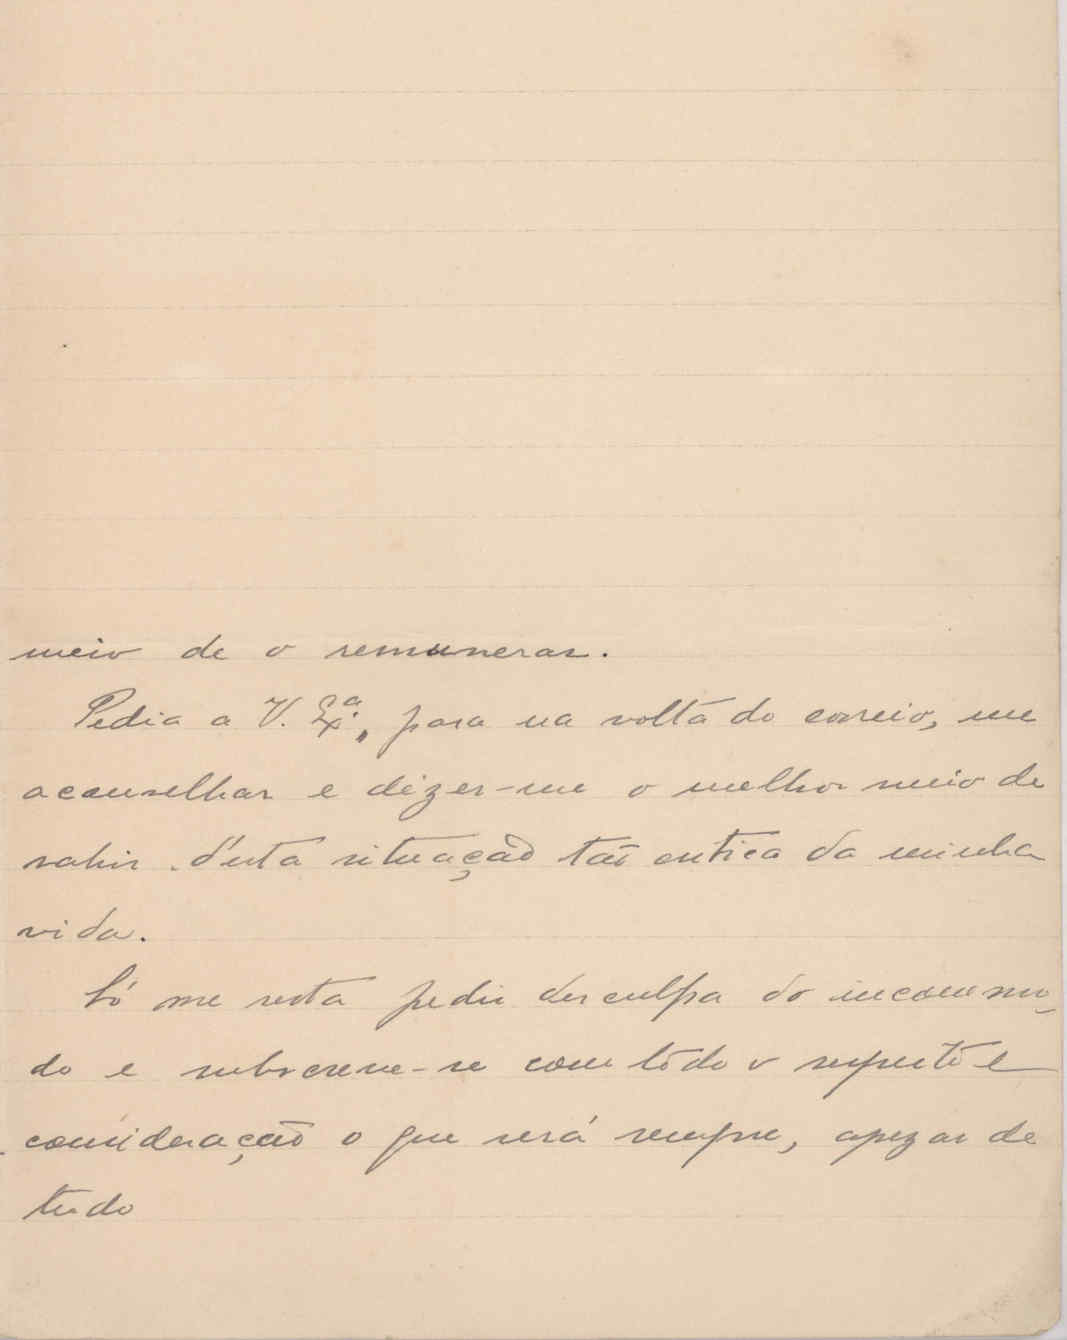 meio de o remunerar.
Pedia a V. Ex.ª, para na volta do correio, me
aconselhar e dizer-me o melhor meio de
sahir d'esta situação tão critica da minha
vida.
Só me resta pedir desculpa do incommo-
do e subscreve-se com todo o respeito e
consideração o que será sempre, apezar de
tudo